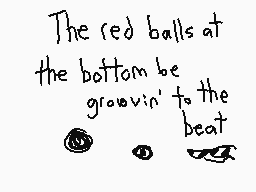 The red balls at
the bottom be
groovin' to the
beat